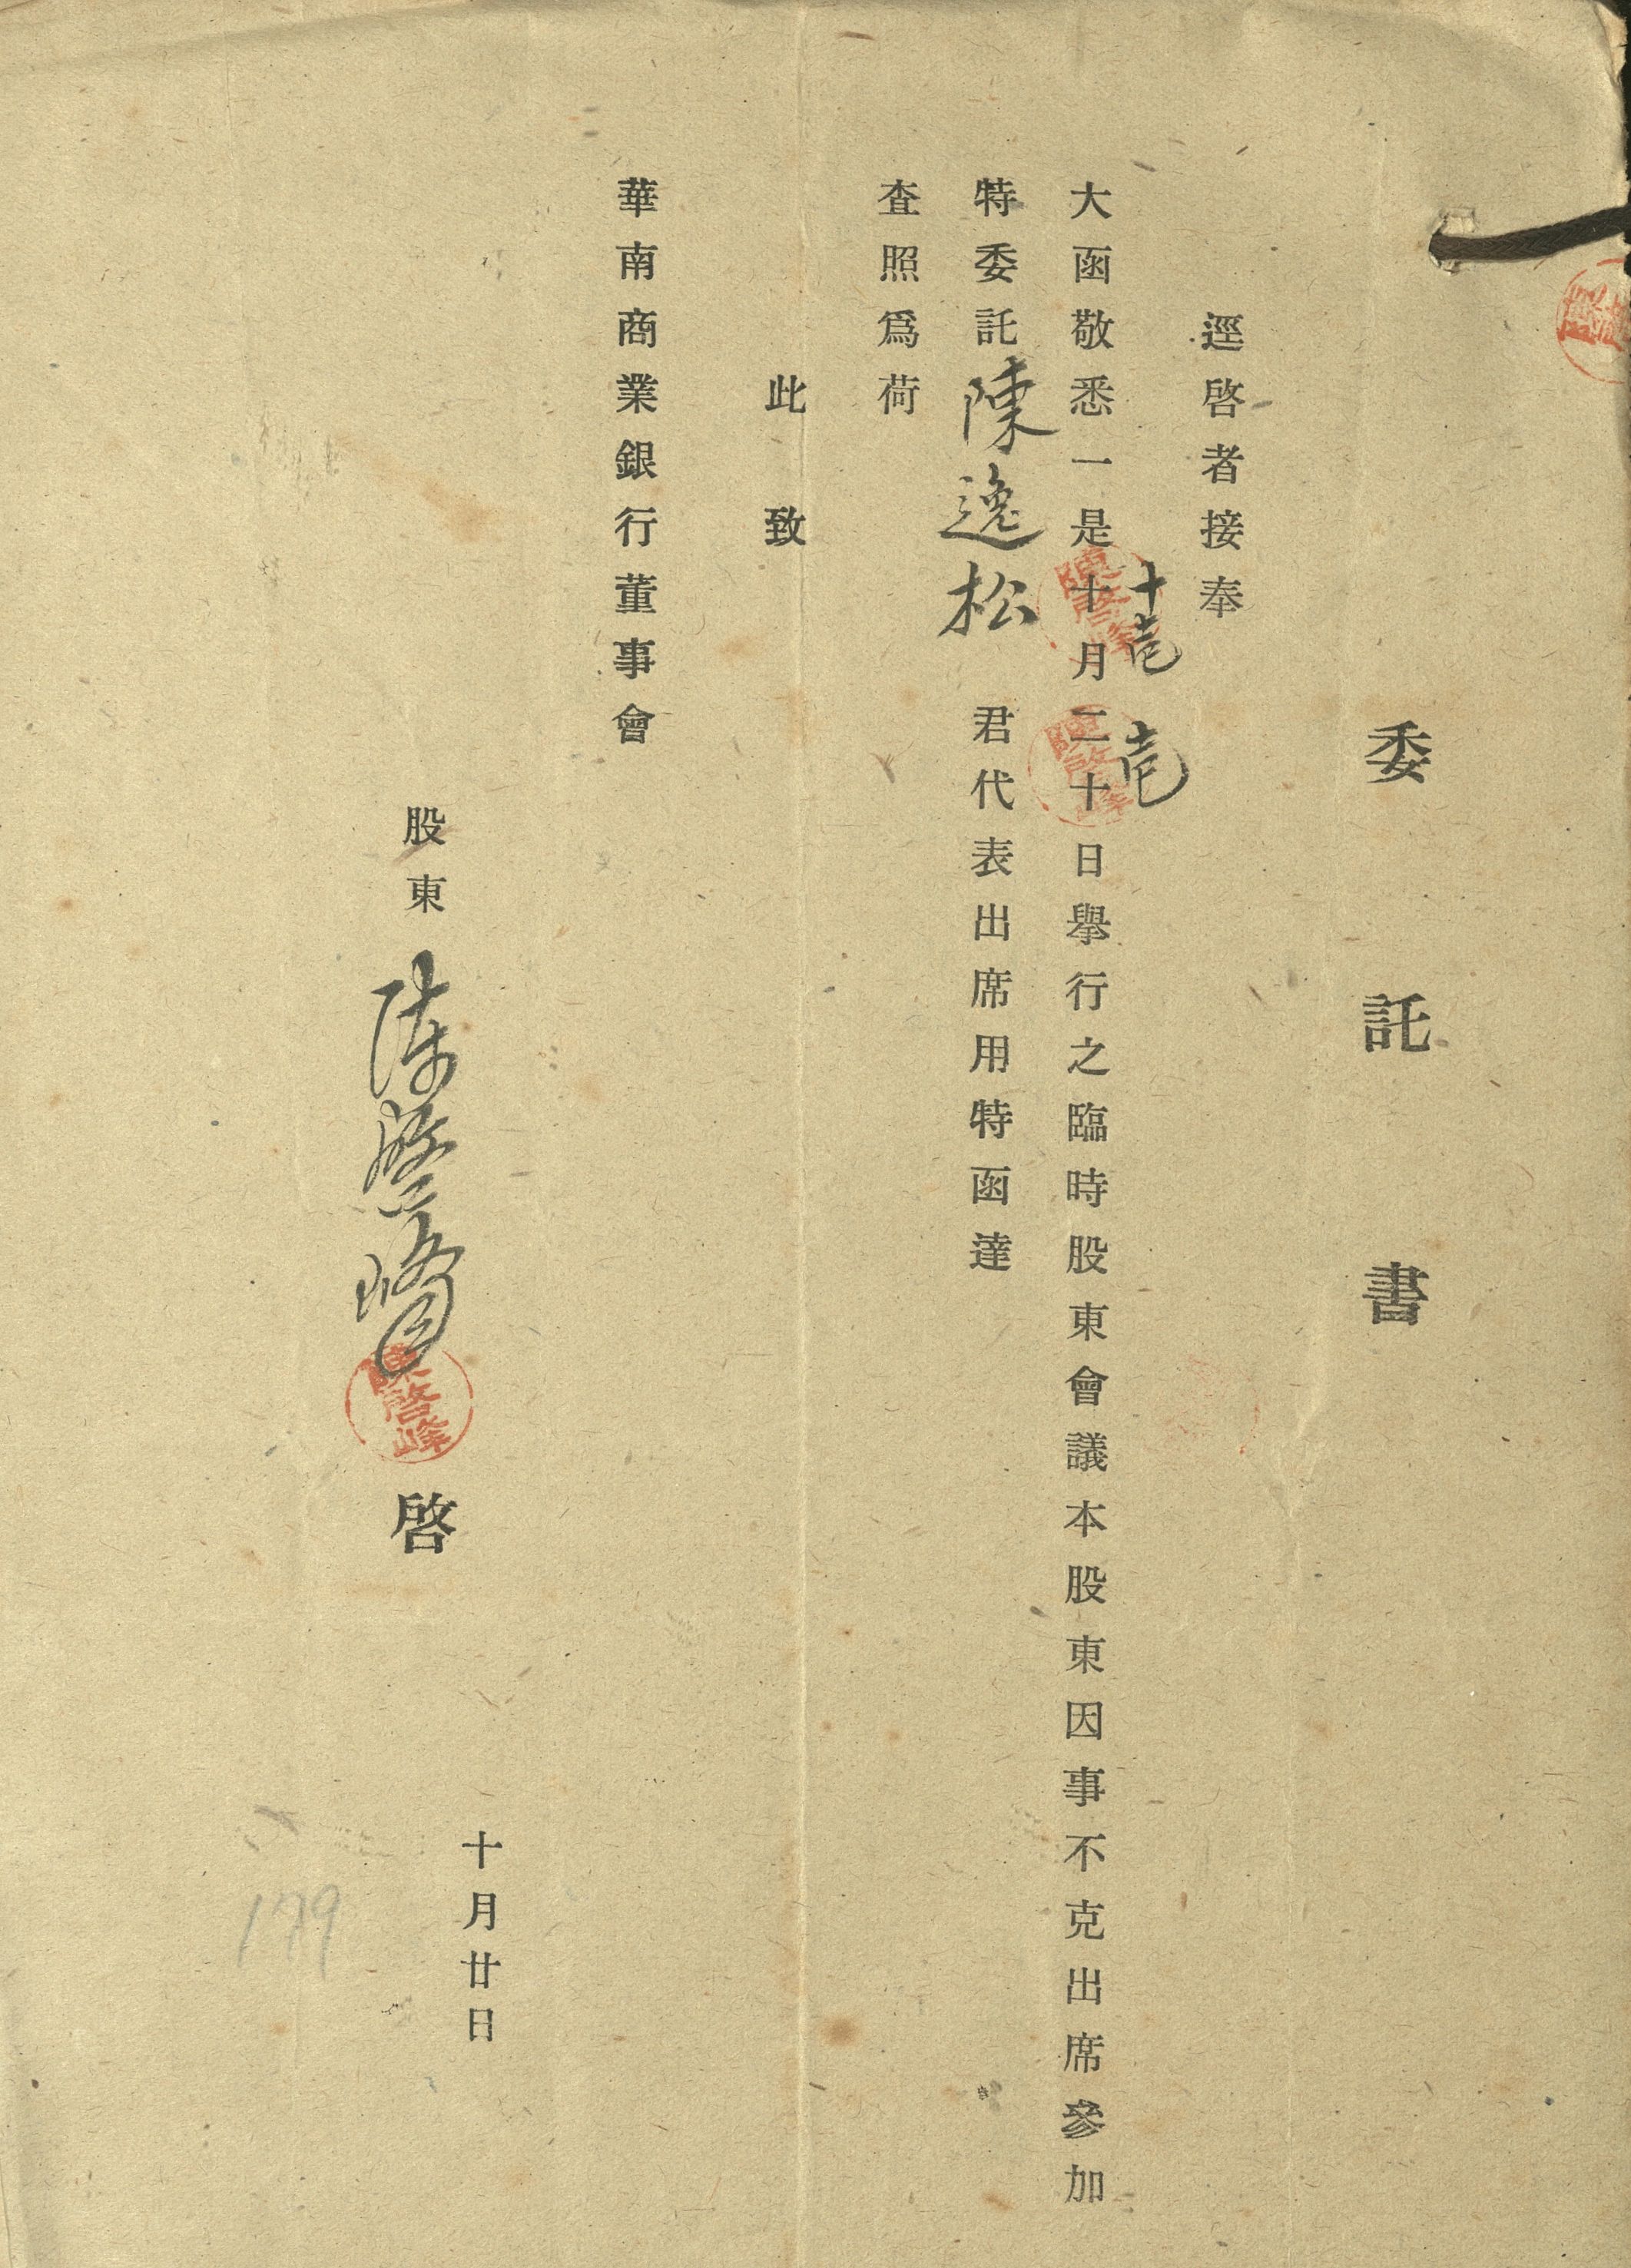 委託書
逕啓者接奉
大函敬悉一是十月二十日舉行之臨時股東會議本股東因事不克出席參加
十壱
壱
特委託陳逸松君代表出席用特函達
查照爲荷
此致
華南商業銀行董事會
股東陳啓峰啓
陳啓峰
陳啓峰
陳啓峰
十月廿日
179